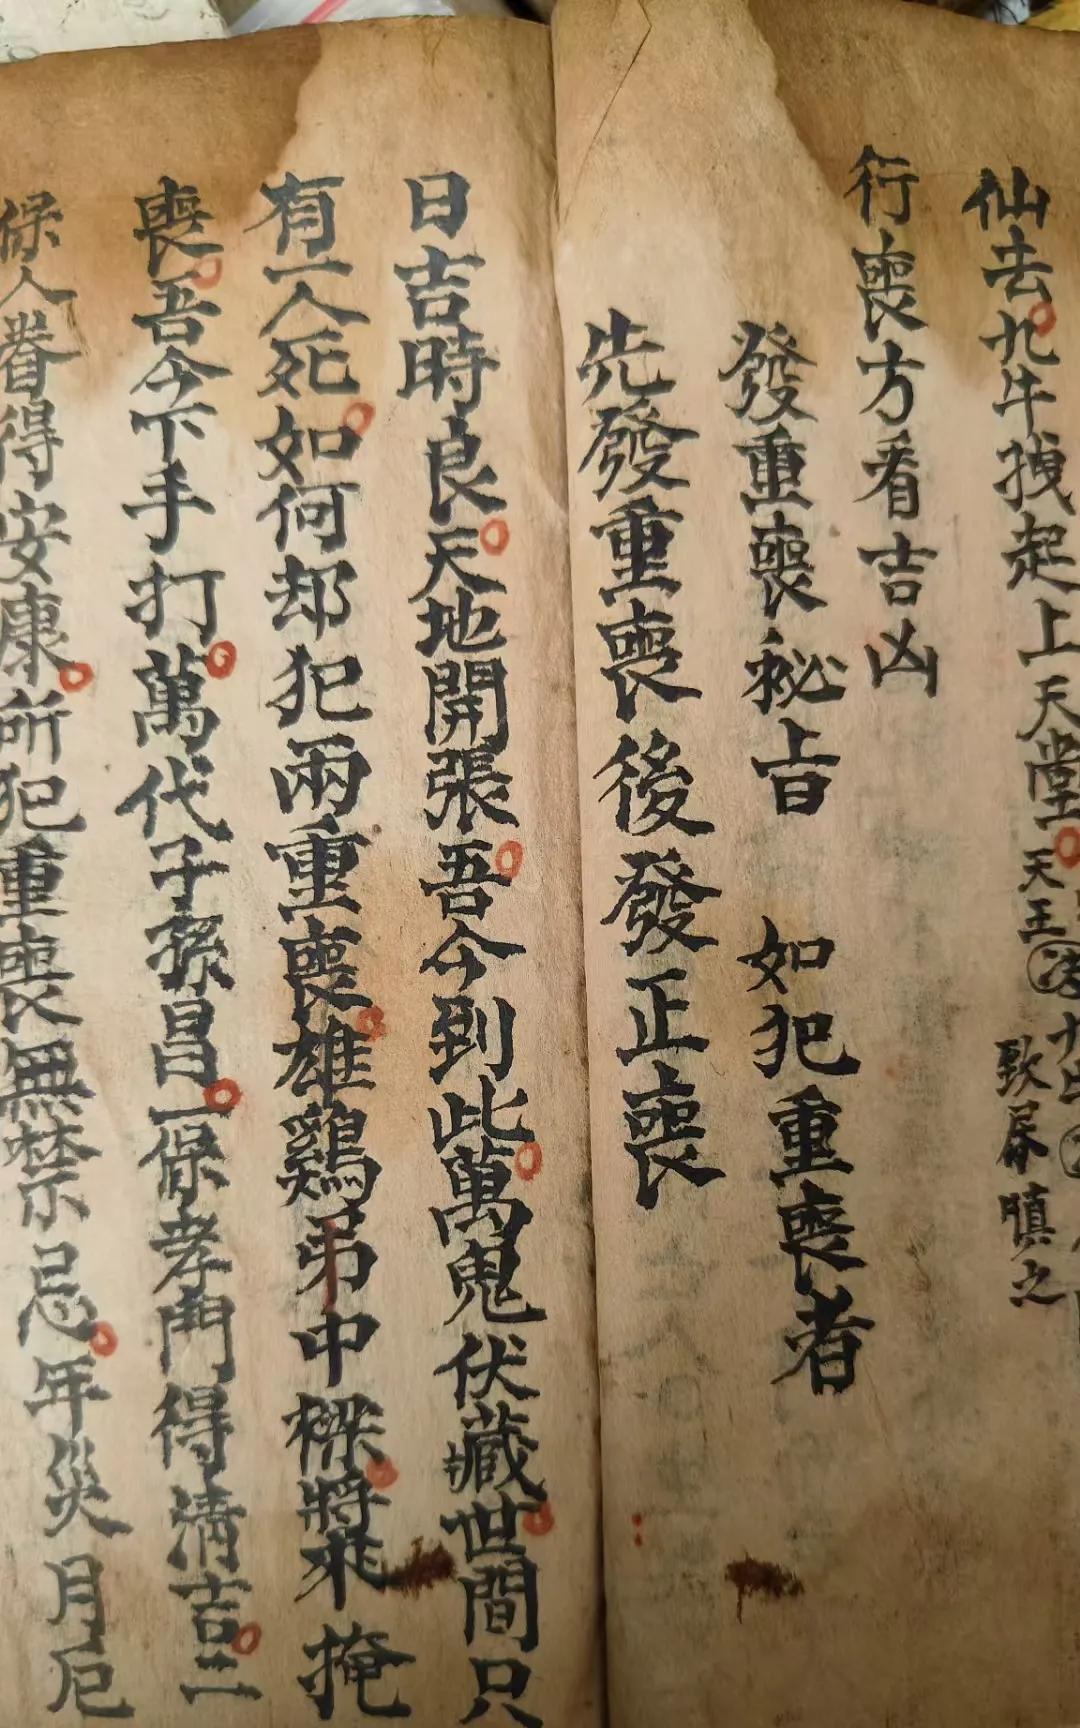 仙去九牛拽起上天堂天王
致辱慎之
行喪方看吉凶
發重喪秘旨 如犯重喪者
先發重喪後發正喪
日吉時良天地開張吾今到此萬鬼伏藏世間只
有一人死如何却犯兩重喪雄鷄弟中樑將來掩
喪吾今下手打萬代子孫昌一保孝門得清吉二
保人眷得安康所犯重喪無禁忌年災月厄